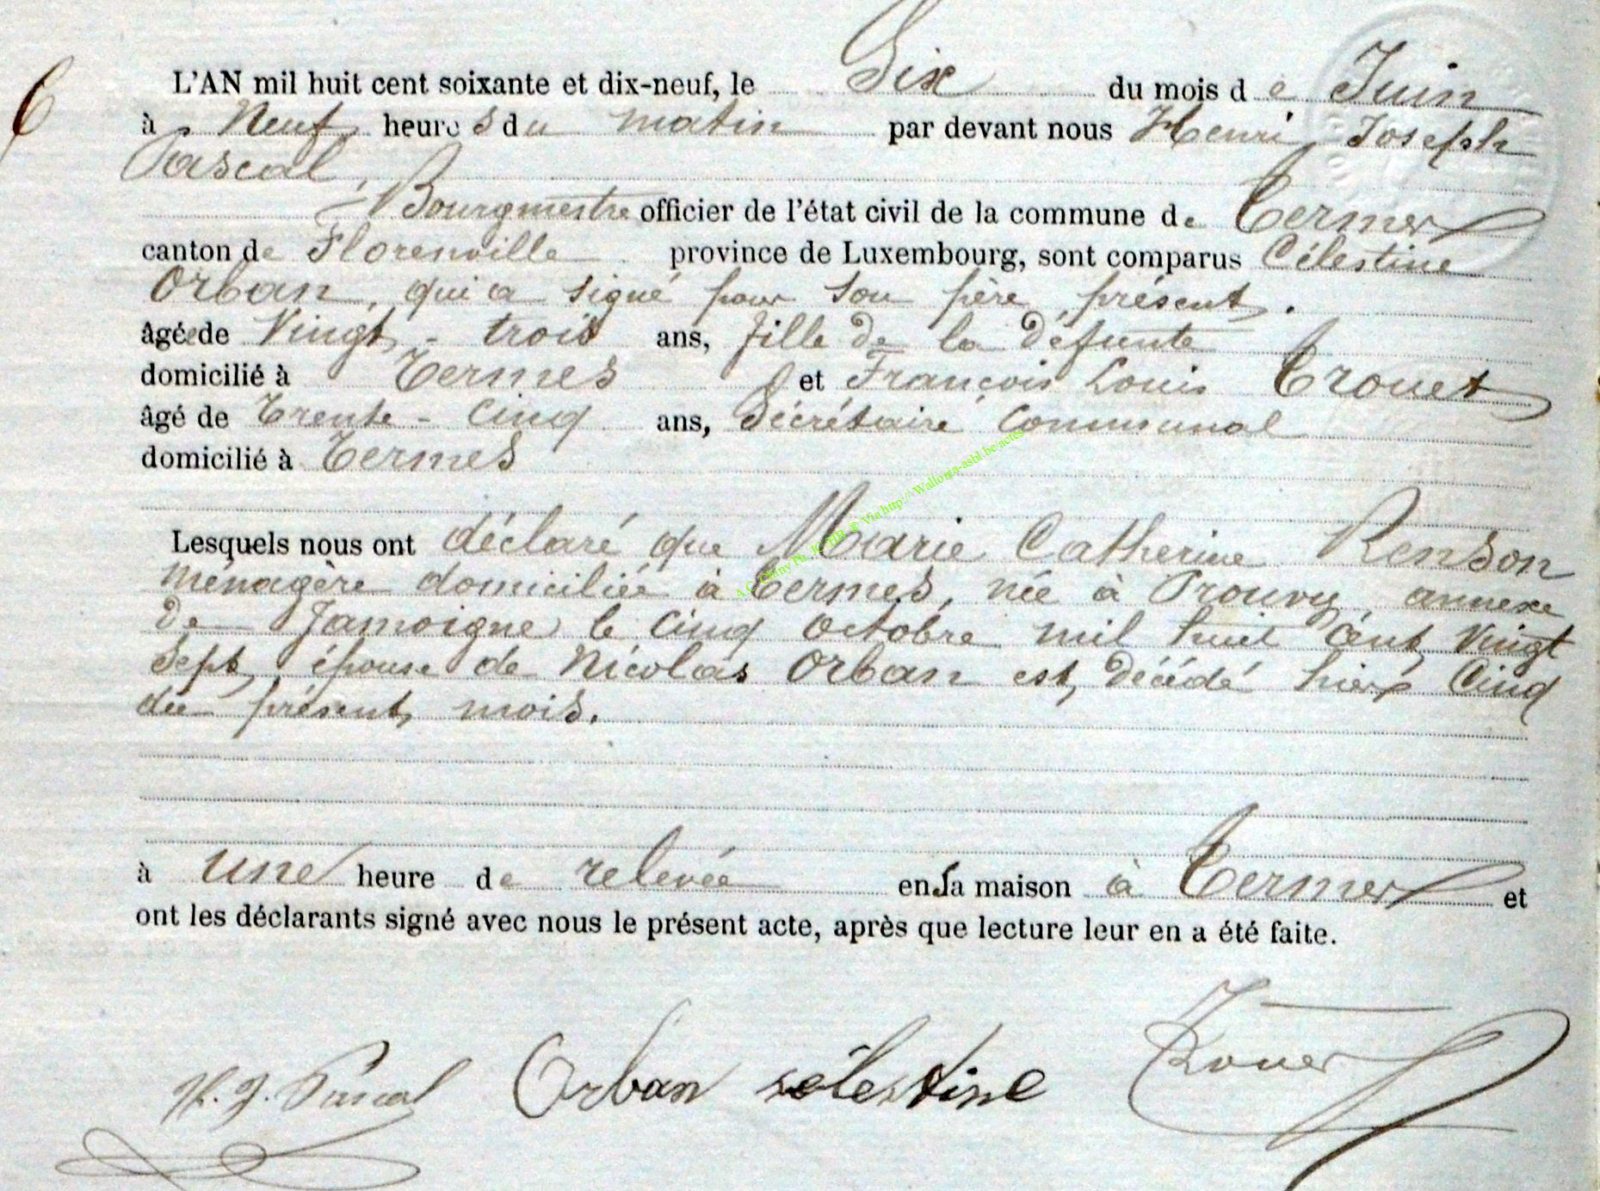 6
L'AN mil huit cent soixante et dix-neuf, le Six du mois de Juin
à Neuf heures du matin par devant nous Henri Joseph
Pascal,
Bourgmestre officier de l'état civil de la commune de Termes
canton de Florenville province de Luxembourg, sont comparus Célestine
Orban, qui a signé pour son père présent.
âgée de Vingt-trois ans, fille de la défunte
domicilié à Termes et François Louis Trouet
âgé de Trente-Cinq ans, Sécrétaire Communal
domicilié à Termes
Lesquels nous ont déclaré que Marie Catherine Renson
ménagère domiciliée à Termes, née à Prouvy, annexe
de Jamoigne le Cinq Octobre mil huit Cent Vingt
Sept, épouse de Nicolas Orban est décédé hier Cinq
du présent mois.
à une heure de relevée en sa maison à Termes et
ont les déclarants signé avec nous le présent acte, après que lecture leur en a été faite.
H. J. Pascal Orban sélestine Trouet